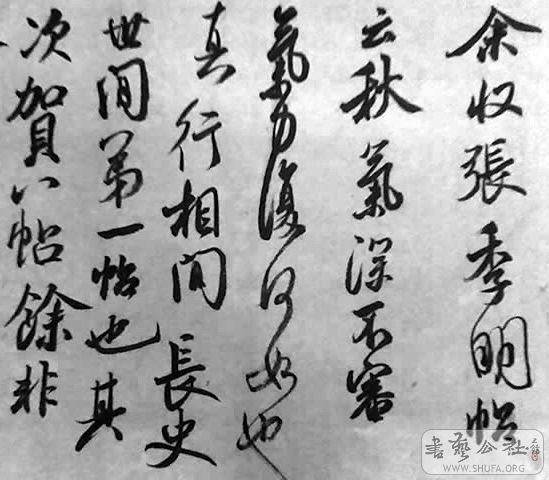 余收張季明帖
云秋氣深不審
氣力復何如也
真行相間長史
世間第一帖也其
次賀八帖餘非
書藝公社
WWW.SHUFA.ORG